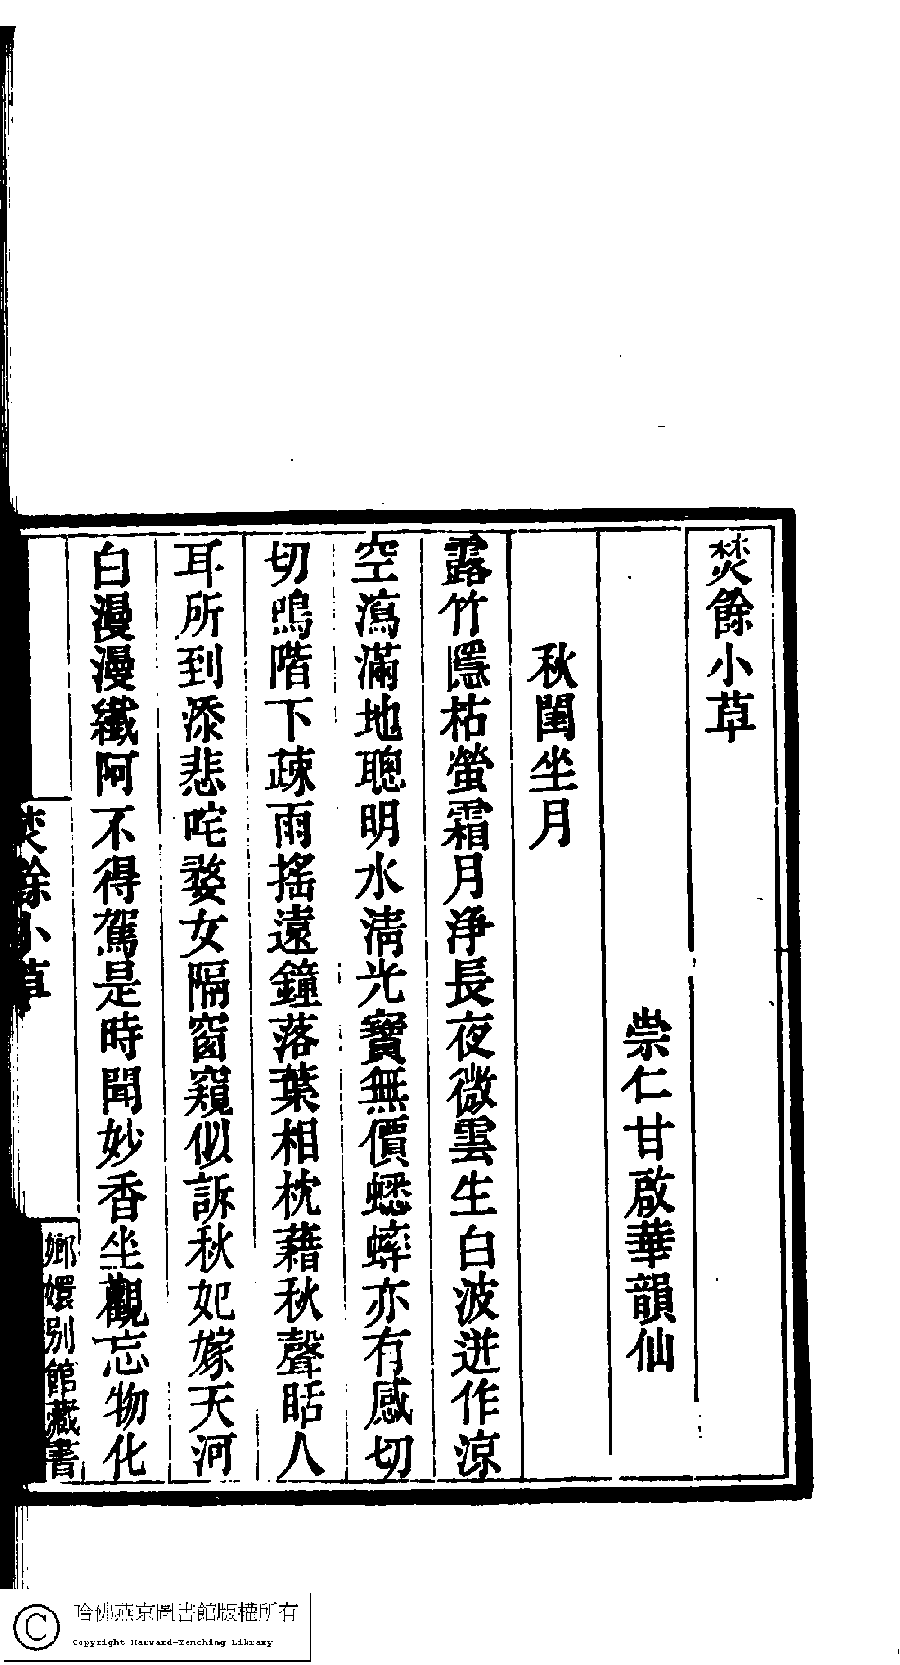 焚餘小草
崇仁甘啟華韻仙
秋閨坐月
露竹隱枯螢霜月淨長夜微雲生白波迸作涼
空瀉滿地聰明水淸光寶無價蟋蟀亦有感切
切鳴階下疎雨搖遠鐘落葉相枕藉秋聲聒人
耳所到添悲咤婺女隔窗窺似訴秋妃嫁天河
白漫漫纖阿不得駕是時聞妙香坐觀忘物化
焚餘小草
嫏嬛別館藏書
哈佛燕京圖書館版權所有
Copyright Harvard-Yenching Library